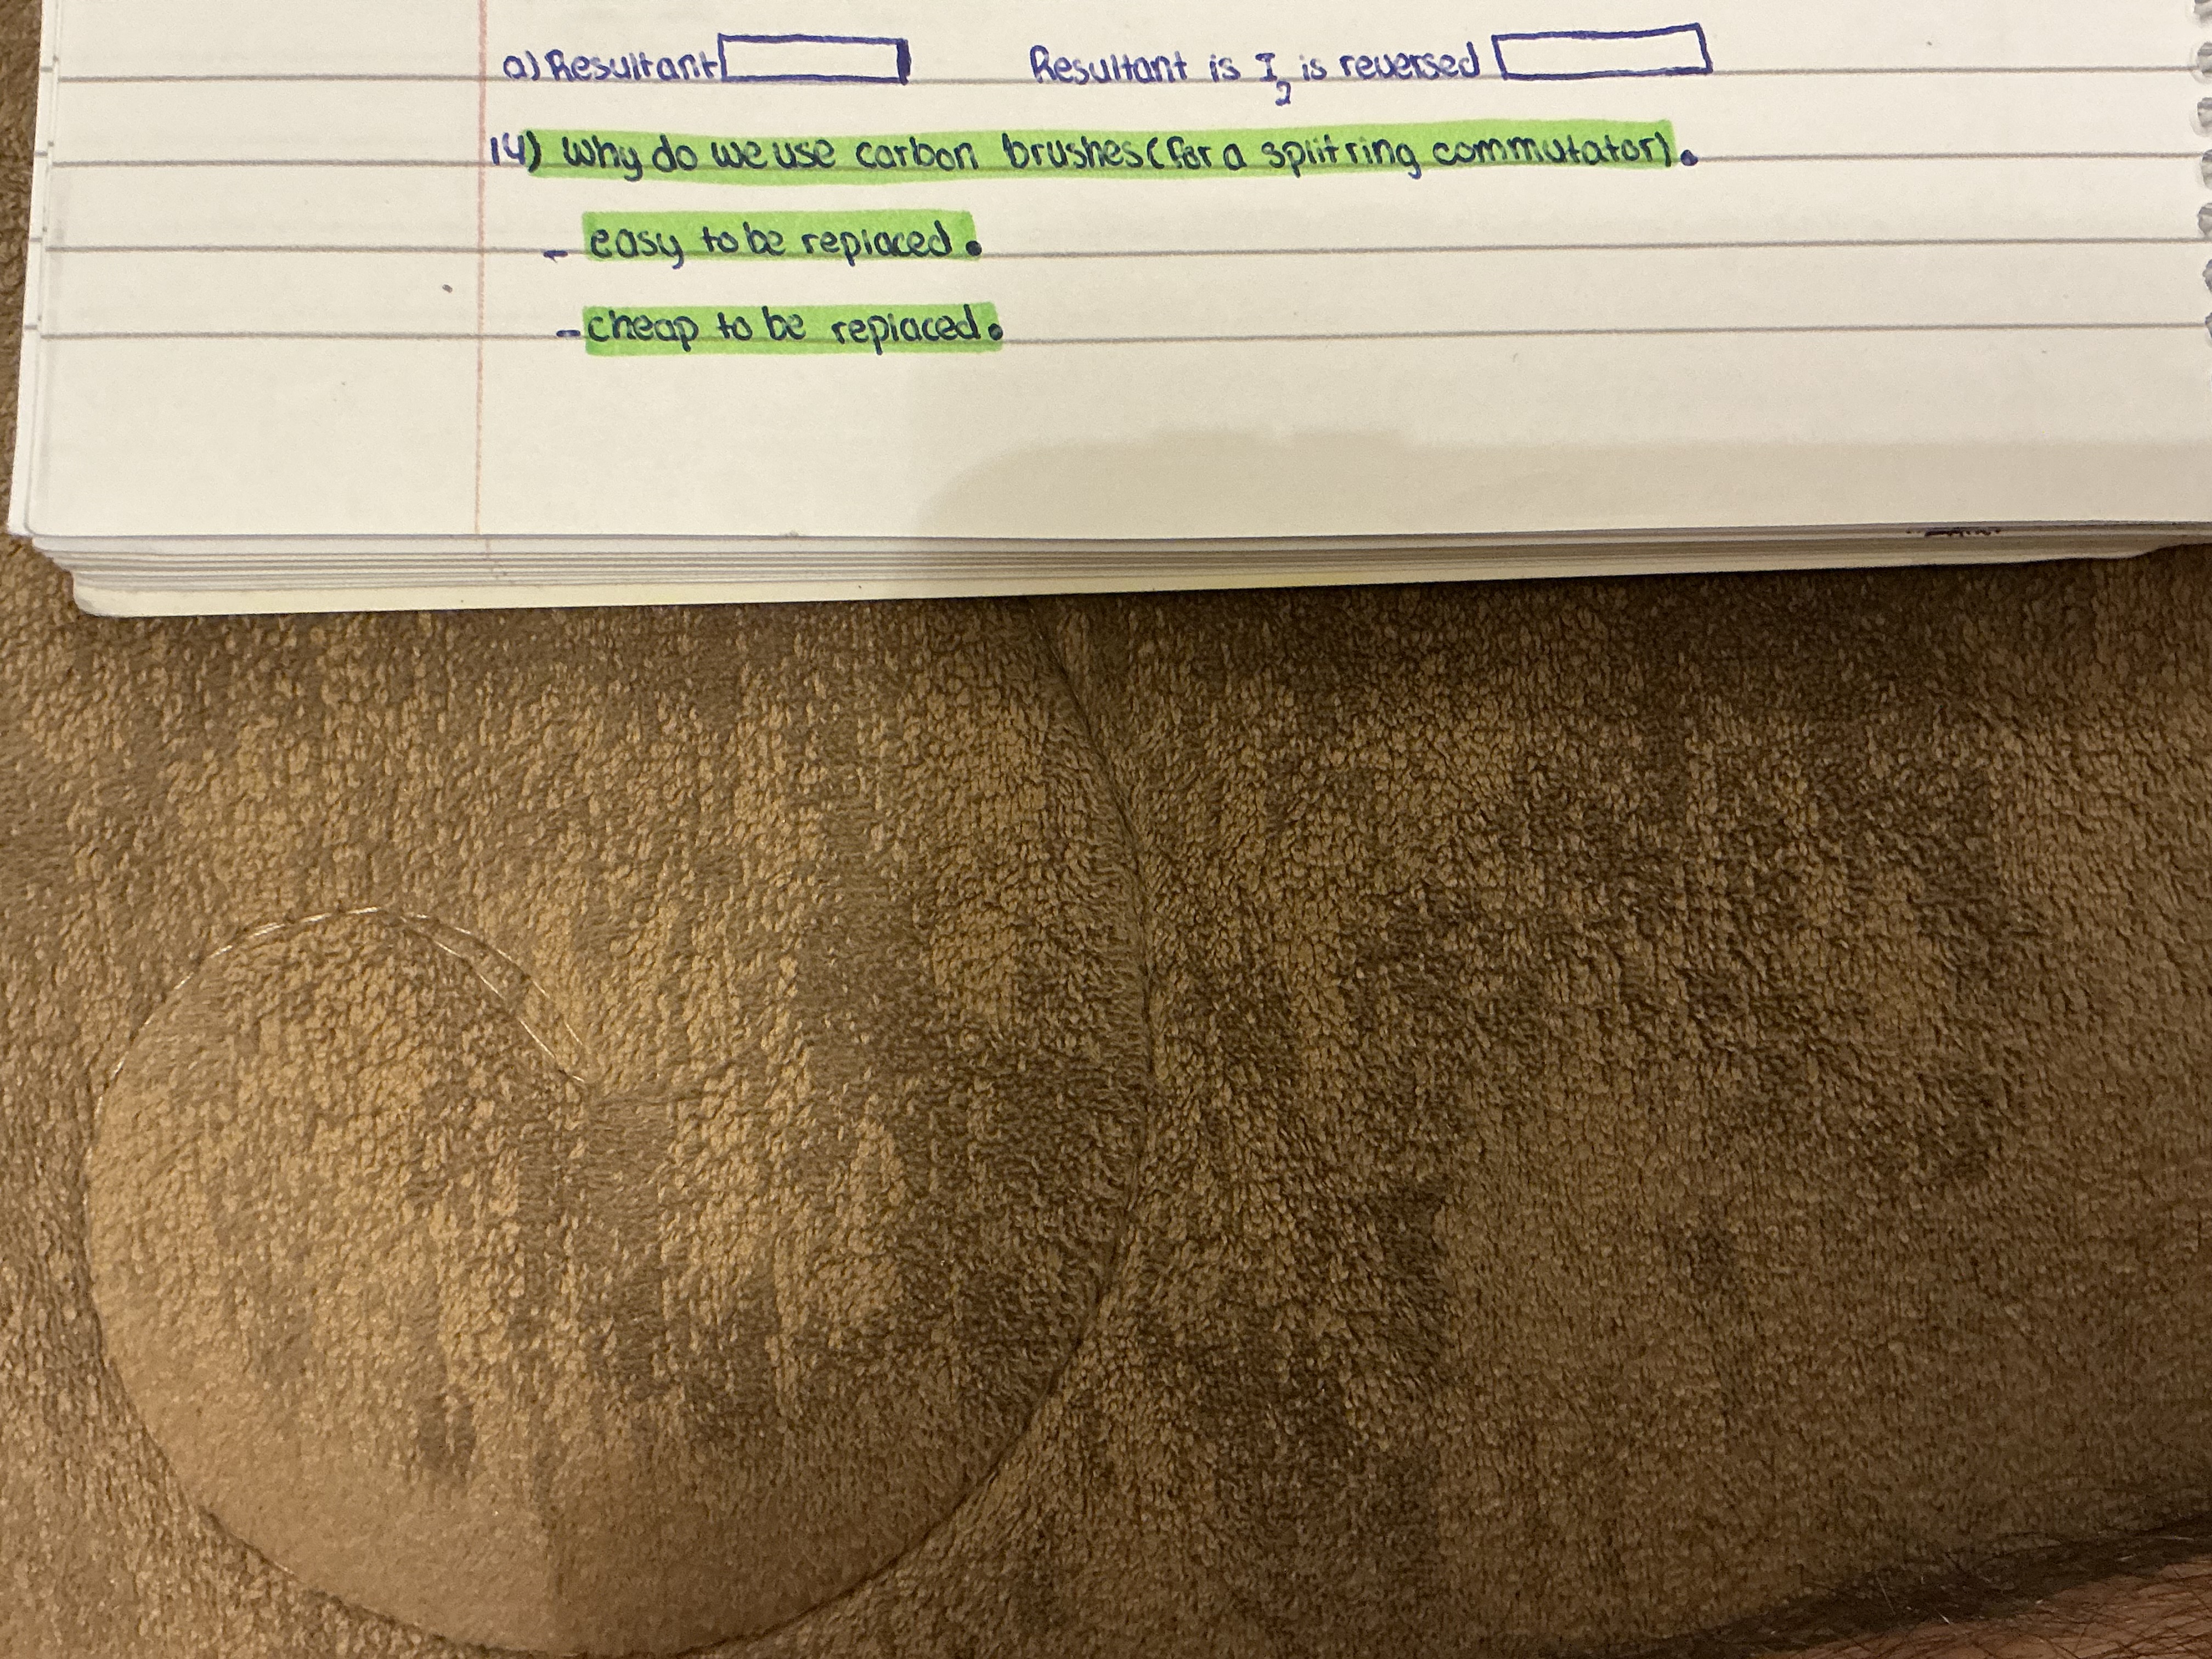 a) Resultant
Resultant is I₂ is reversed
14) Why do we use carbon brushes (for a split ring commutator).
- easy to be replaced.
- cheap to be replaced.